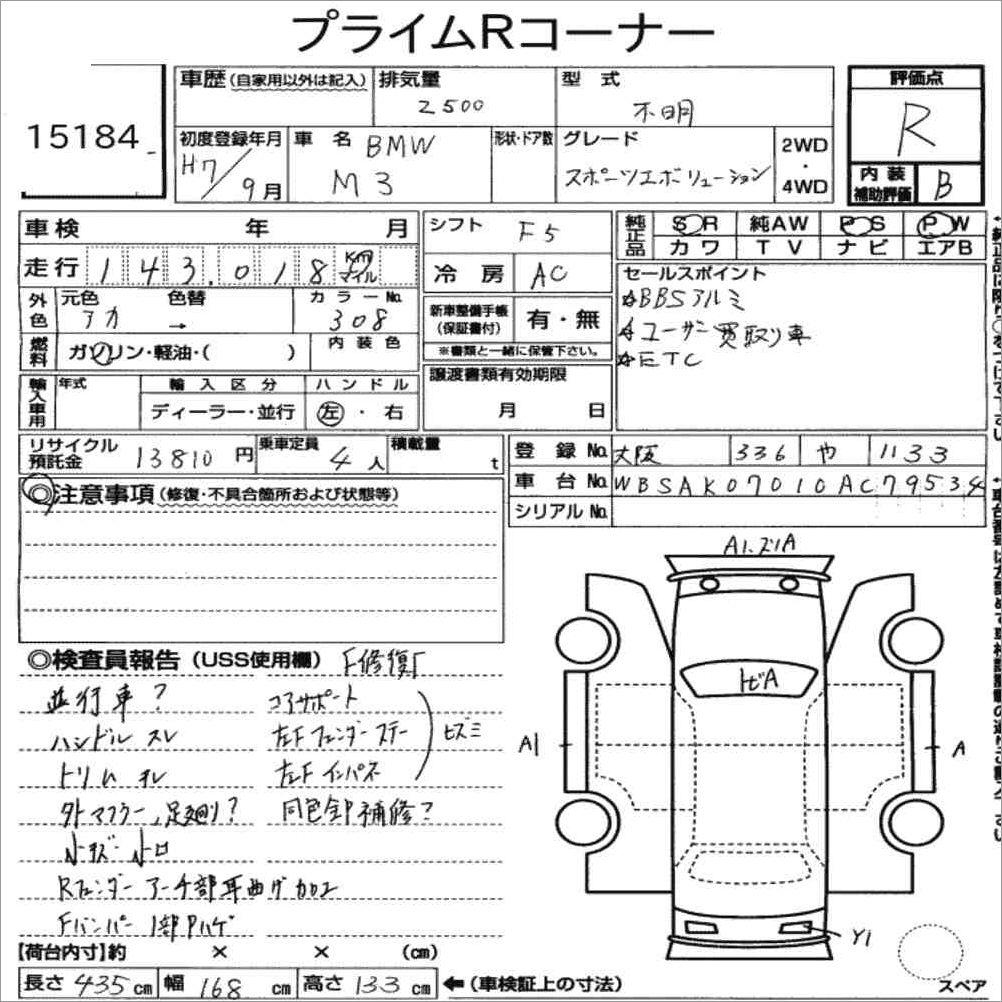 プライムRコーナー
15184
車歴(自家用以外は記入) 排気量 2500
型式 不明
評価点 R
初度登録年月 H7/9月
車名 BMW M3
形状・ドア数
グレード スポーツエボリューション
2WD・4WD
内装補助評価 B
車検 年 月
シフト F5
純正品 SR 純AW PS PW
カワ TV ナビ エアB
走行 143.018 km マイル
冷房 AC
セールスポイント
☆BBSアルミ
☆ユーザー買取り車
☆ETC
外色 元色 アカ 色替 → カラーNo. 308
新車整備手帳(保証書付) 有・無
※書類と一緒に保管下さい。
燃料 ガソリン・軽油・( ) 内装色
輸入車用 年式 輸入区分 ハンドル
ディーラー・並行 左・右
譲渡書類有効期限
月 日
リサイクル預託金 13810円 乗車定員 4人 積載量 t
登録No. 大阪 336 や 1133
車台No. WBSAK07010AC79534
シリアルNo.
◎注意事項(修復・不具合箇所および状態等)
◎検査員報告(USS使用欄) F修復
並行車? コアサポート
ハンドル スレ 左Fフェンダーステー ヒズミ
トリム オレ 左Fインパネ
外マフラー,足廻り? 同色全部補修?
小キズ 小凹
Rフェンダーアーチ部耳曲げ加工
Fバンパー 1部Pハゲ
A1.ズリA
トビA
A1
A
Y1
スペア
【荷台内寸】約 × × (cm)
長さ 435cm 幅 168cm 高さ 133cm ←(車検証上の寸法)